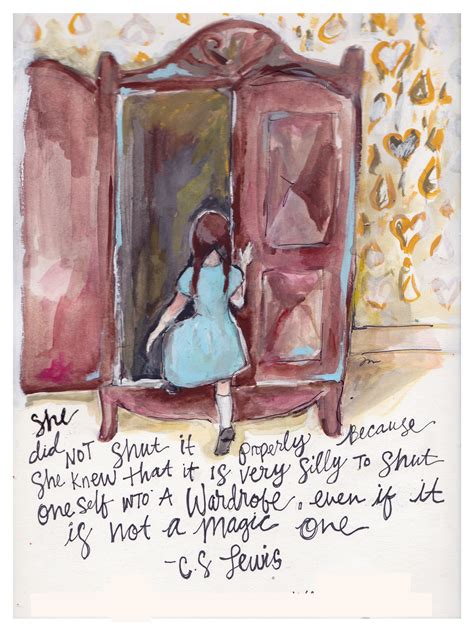 She
did NOT Shut it properly Because
She knew that it is very silly to shut
oneself into a Wardrobe, even if it
is not a magic one
-C.S Lewis